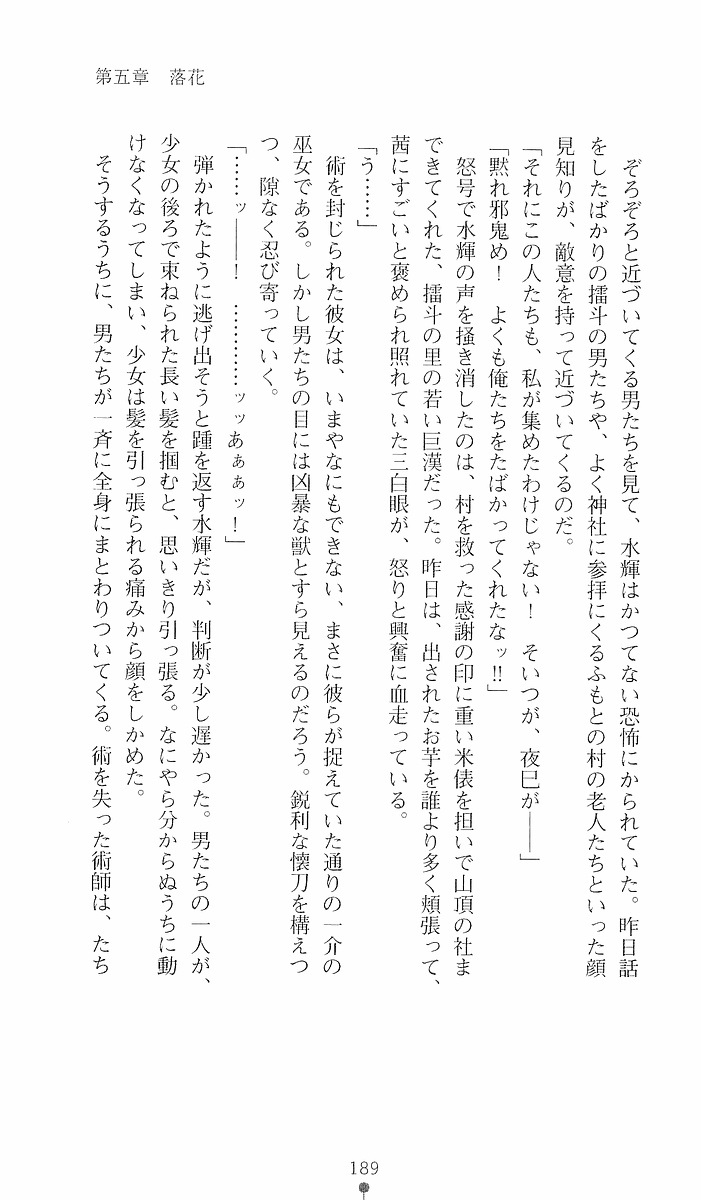 第五章　落花
　ぞろぞろと近づいてくる男たちを見て、水輝はかつてない恐怖にかられていた。昨日話
をしたばかりの擂斗の男たちや、よく神社に参拝にくるふもとの村の老人たちといった顔
見知りが、敵意を持って近づいてくるのだ。
「それにこの人たちも、私が集めたわけじゃない！　そいつが、夜巳が――」
「黙れ邪鬼め！　よくも俺たちをたばかってくれたなッ!!」
　怒号で水輝の声を掻き消したのは、村を救った感謝の印に重い米俵を担いで山頂の社ま
できてくれた、擂斗の里の若い巨漢だった。昨日は、出されたお芋を誰より多く頬張って、
茜にすごいと褒められ照れていた三白眼が、怒りと興奮に血走っている。
「う……」
　術を封じられた彼女は、いまやなにもできない、まさに彼らが捉えていた通りの一介の
巫女である。しかし男たちの目には凶暴な獣とすら見えるのだろう。鋭利な懐刀を構えつ
つ、隙なく忍び寄っていく。
「……ッ――！　…………ッッあぁぁッ！」
　弾かれたように逃げ出そうと踵を返す水輝だが、判断が少し遅かった。男たちの一人が、
少女の後ろで束ねられた長い髪を掴むと、思いきり引っ張る。なにやら分からぬうちに動
けなくなってしまい、少女は髪を引っ張られる痛みから顔をしかめた。
　そうするうちに、男たちが一斉に全身にまとわりついてくる。術を失った術師は、たち
189